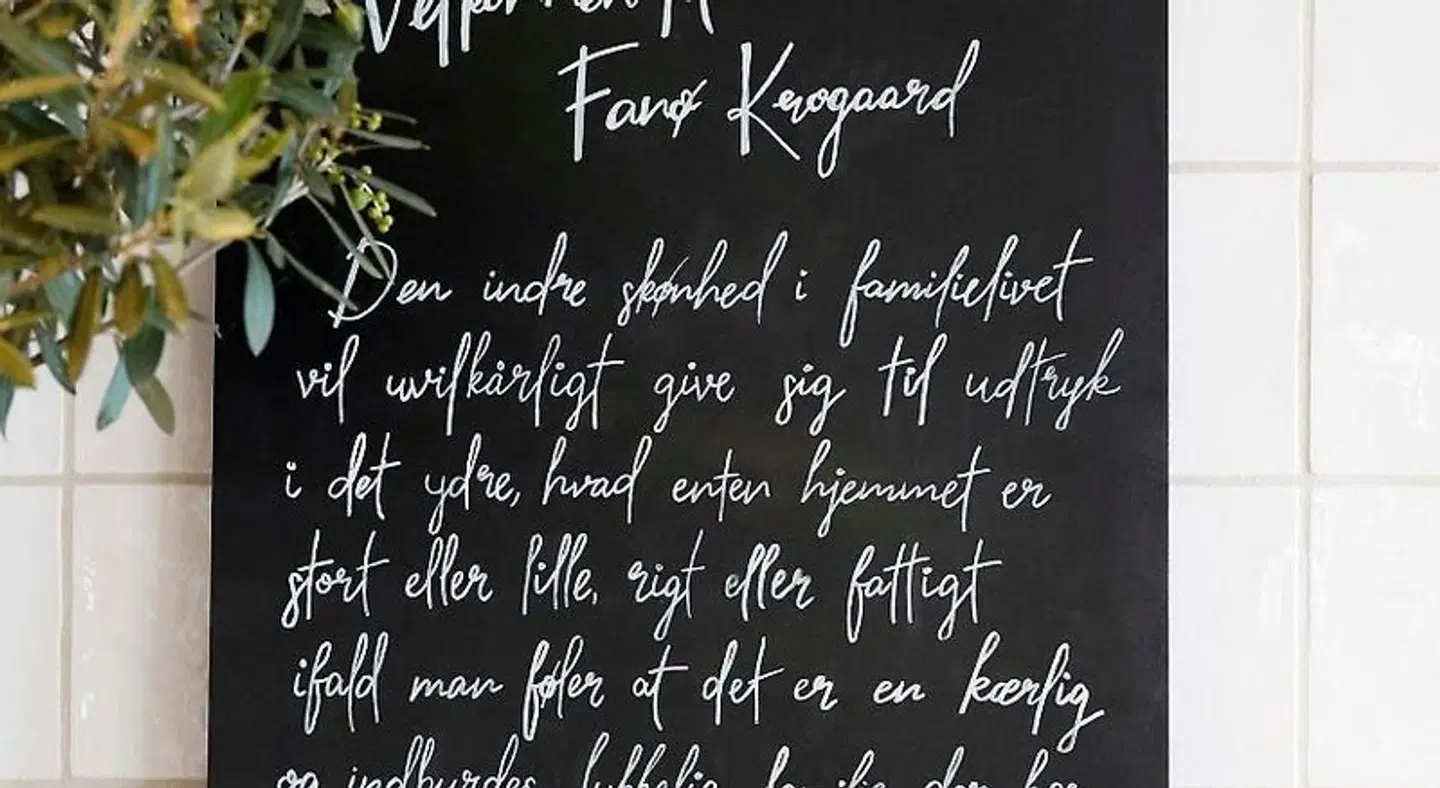 Velkommen til
Fanø Krogaard
Den indre skønhed i familielivet
vil uvilkårligt give sig til udtryk
i det ydre, hvad enten hjemmet er
stort eller lille, rigt eller fattigt
ifald man føler at det er en kærlig
og indbyrdes lykkelig familie der bor